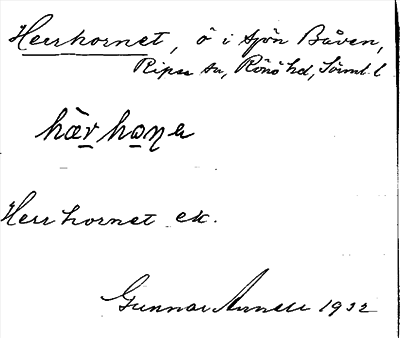 Herrhornet, ö i sjön Båven,
Ripsa sn, Rönö hd, Sörml. l
hær hoṇɐ
Herrhornet ek.
Gunnar 1932